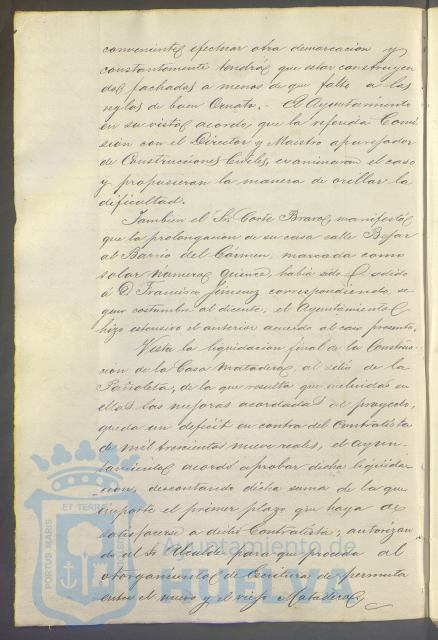 conveniente, efectuar otra demarcacion y
constantemente tendrá que estar construyen
dose fachadas á menos de que falte á las
reglas de buen Ornato.- El Ayuntamiento
en su vista, acordó, que la referida Comi
sion con el Director y Maestro aparejador
de Construcciones Civiles, examinaran el caso
y propusieran la manera de orillar la
dificultad.
Tambien el Sr. Corte Bravo, manifestó
que la prolongacion de su casa calle Bejar
al Barrio del Cármen, marcada como
solar número quince, habia sido cedido
á D. Francisco Jimenez correspondiendo, se
gun costumbre al dicente; el Ayuntamiento
hizo estensivo el anterior acuerdo al caso presente.
Vista la liquidacion final de la Construc
cion de la Casa Matadero, al sitio de la
Pañoleta, de la que resulta que incluidas en
ellas las mejoras acordadas al proyecto,
queda un deficit en contra del Contratista
de mil trescientos nueve reales, el Ayun
tamiento, acordó aprobar dicha liquida
cion, descontando dicha suma de la que
importe el primer plazo que haya de
satisfacerse á dicho Contratista, autorizan
do al Sr. Alcalde para que proceda al
otorgamiento de Escritura de permuta
entre el nuevo y el viejo Matadero.
PORTUS MARIS
ET TERRÆ
Ayuntamiento de
HUELVA